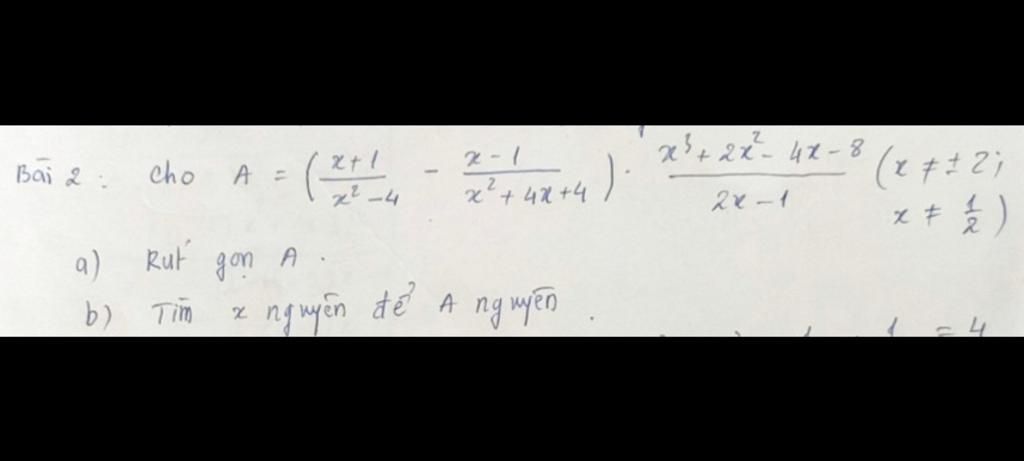 Bài 2 : Cho A = ( (x+1)/(x²-4) - (x-1)/(x²+4x+4) ) . (x³+2x²-4x-8)/(2x-1) (x ≠ ±2; x ≠ 1/2)
a) Rút gọn A .
b) Tìm x nguyên để A nguyên .
= 4